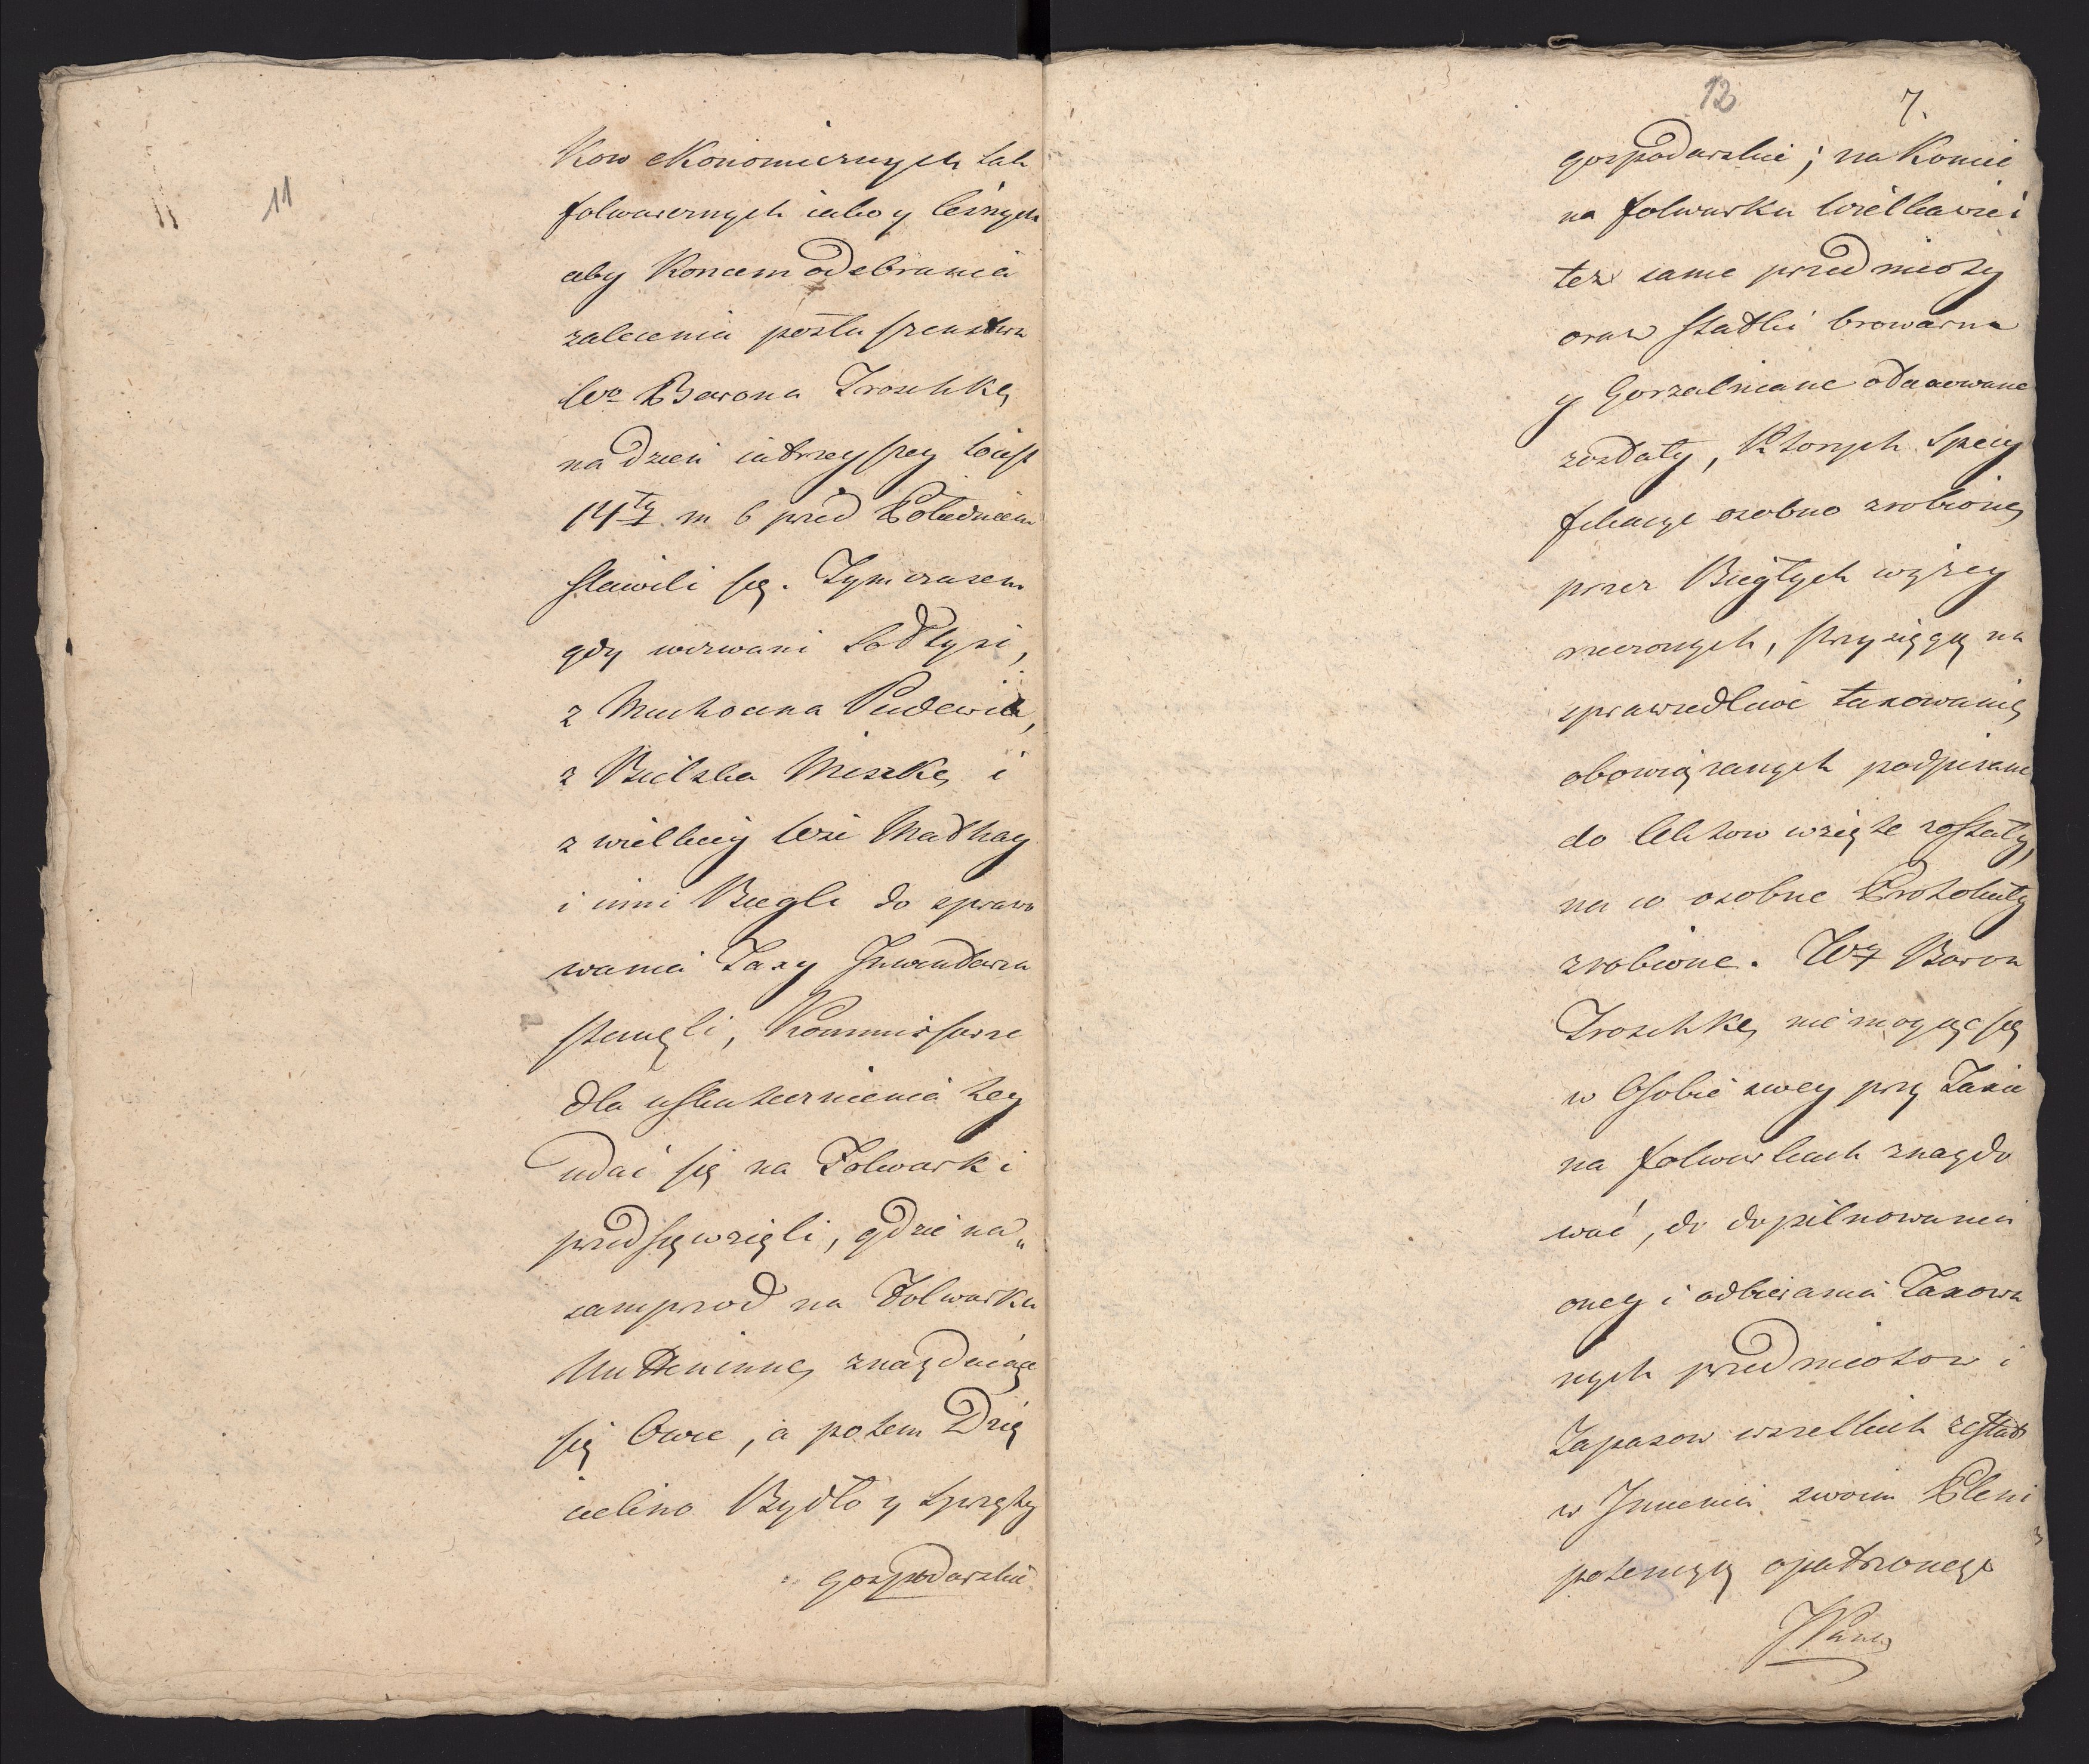 11
Kow ekonomicznych tak
folwarcznych iako y leśnych
aby Koncem odebrania
zalecenia posłuszenstwa
Wo Barona Troschke
na dzien iutrzeyszy to iest
14ty m 6 przed Południem
stawili się. Tym czasem
gdy wezwani Sołtysi,
z Muchocina
z Bielska Miszke i
z wielkiey Wsi Mathay
i inni Biegli do sprawo
wania Taxy Inwentarza
stanęli, Kommissarze
dla uskutecznienia tey
udać się na Folwarki
przedsięwzięli, gdzie na„
samprzod na Folwarku
Mutheninne znayduiące
się Owce, a potem Dzię
cielino Bydło y Sprzęty
gospodarskie
12 7.
gospodarskie; na Koniec
na folwarku Wielkawieś
też same przedmioty
oraz statki browarne
y Gorzalniane otaxowane
zostały, Ktorych Specy
fikacye osobno zrobione
przez Biegłych wyżey
rzeczonych, przysięgą na
sprawiedliwe taxowanie
obowiązanych podpisane
do Aktow wzięte zostały,
na co osobne Protokuły
zrobione. WJ Baron
Troschke nie mogąc się
w Osobie swey przy Taxie
na folwarkach znaydo
wać, do dopilnowania
oney i odbierania Taxowa
nych przedmiotow i
Zapasow wszelkich zestał
w Imieniu swoim Pleni
potencyą opatrzonego
JPana